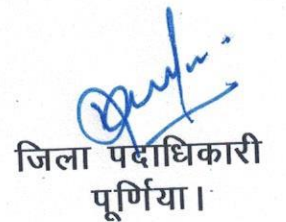 जिला पदाधिकारी
पूर्णिया।